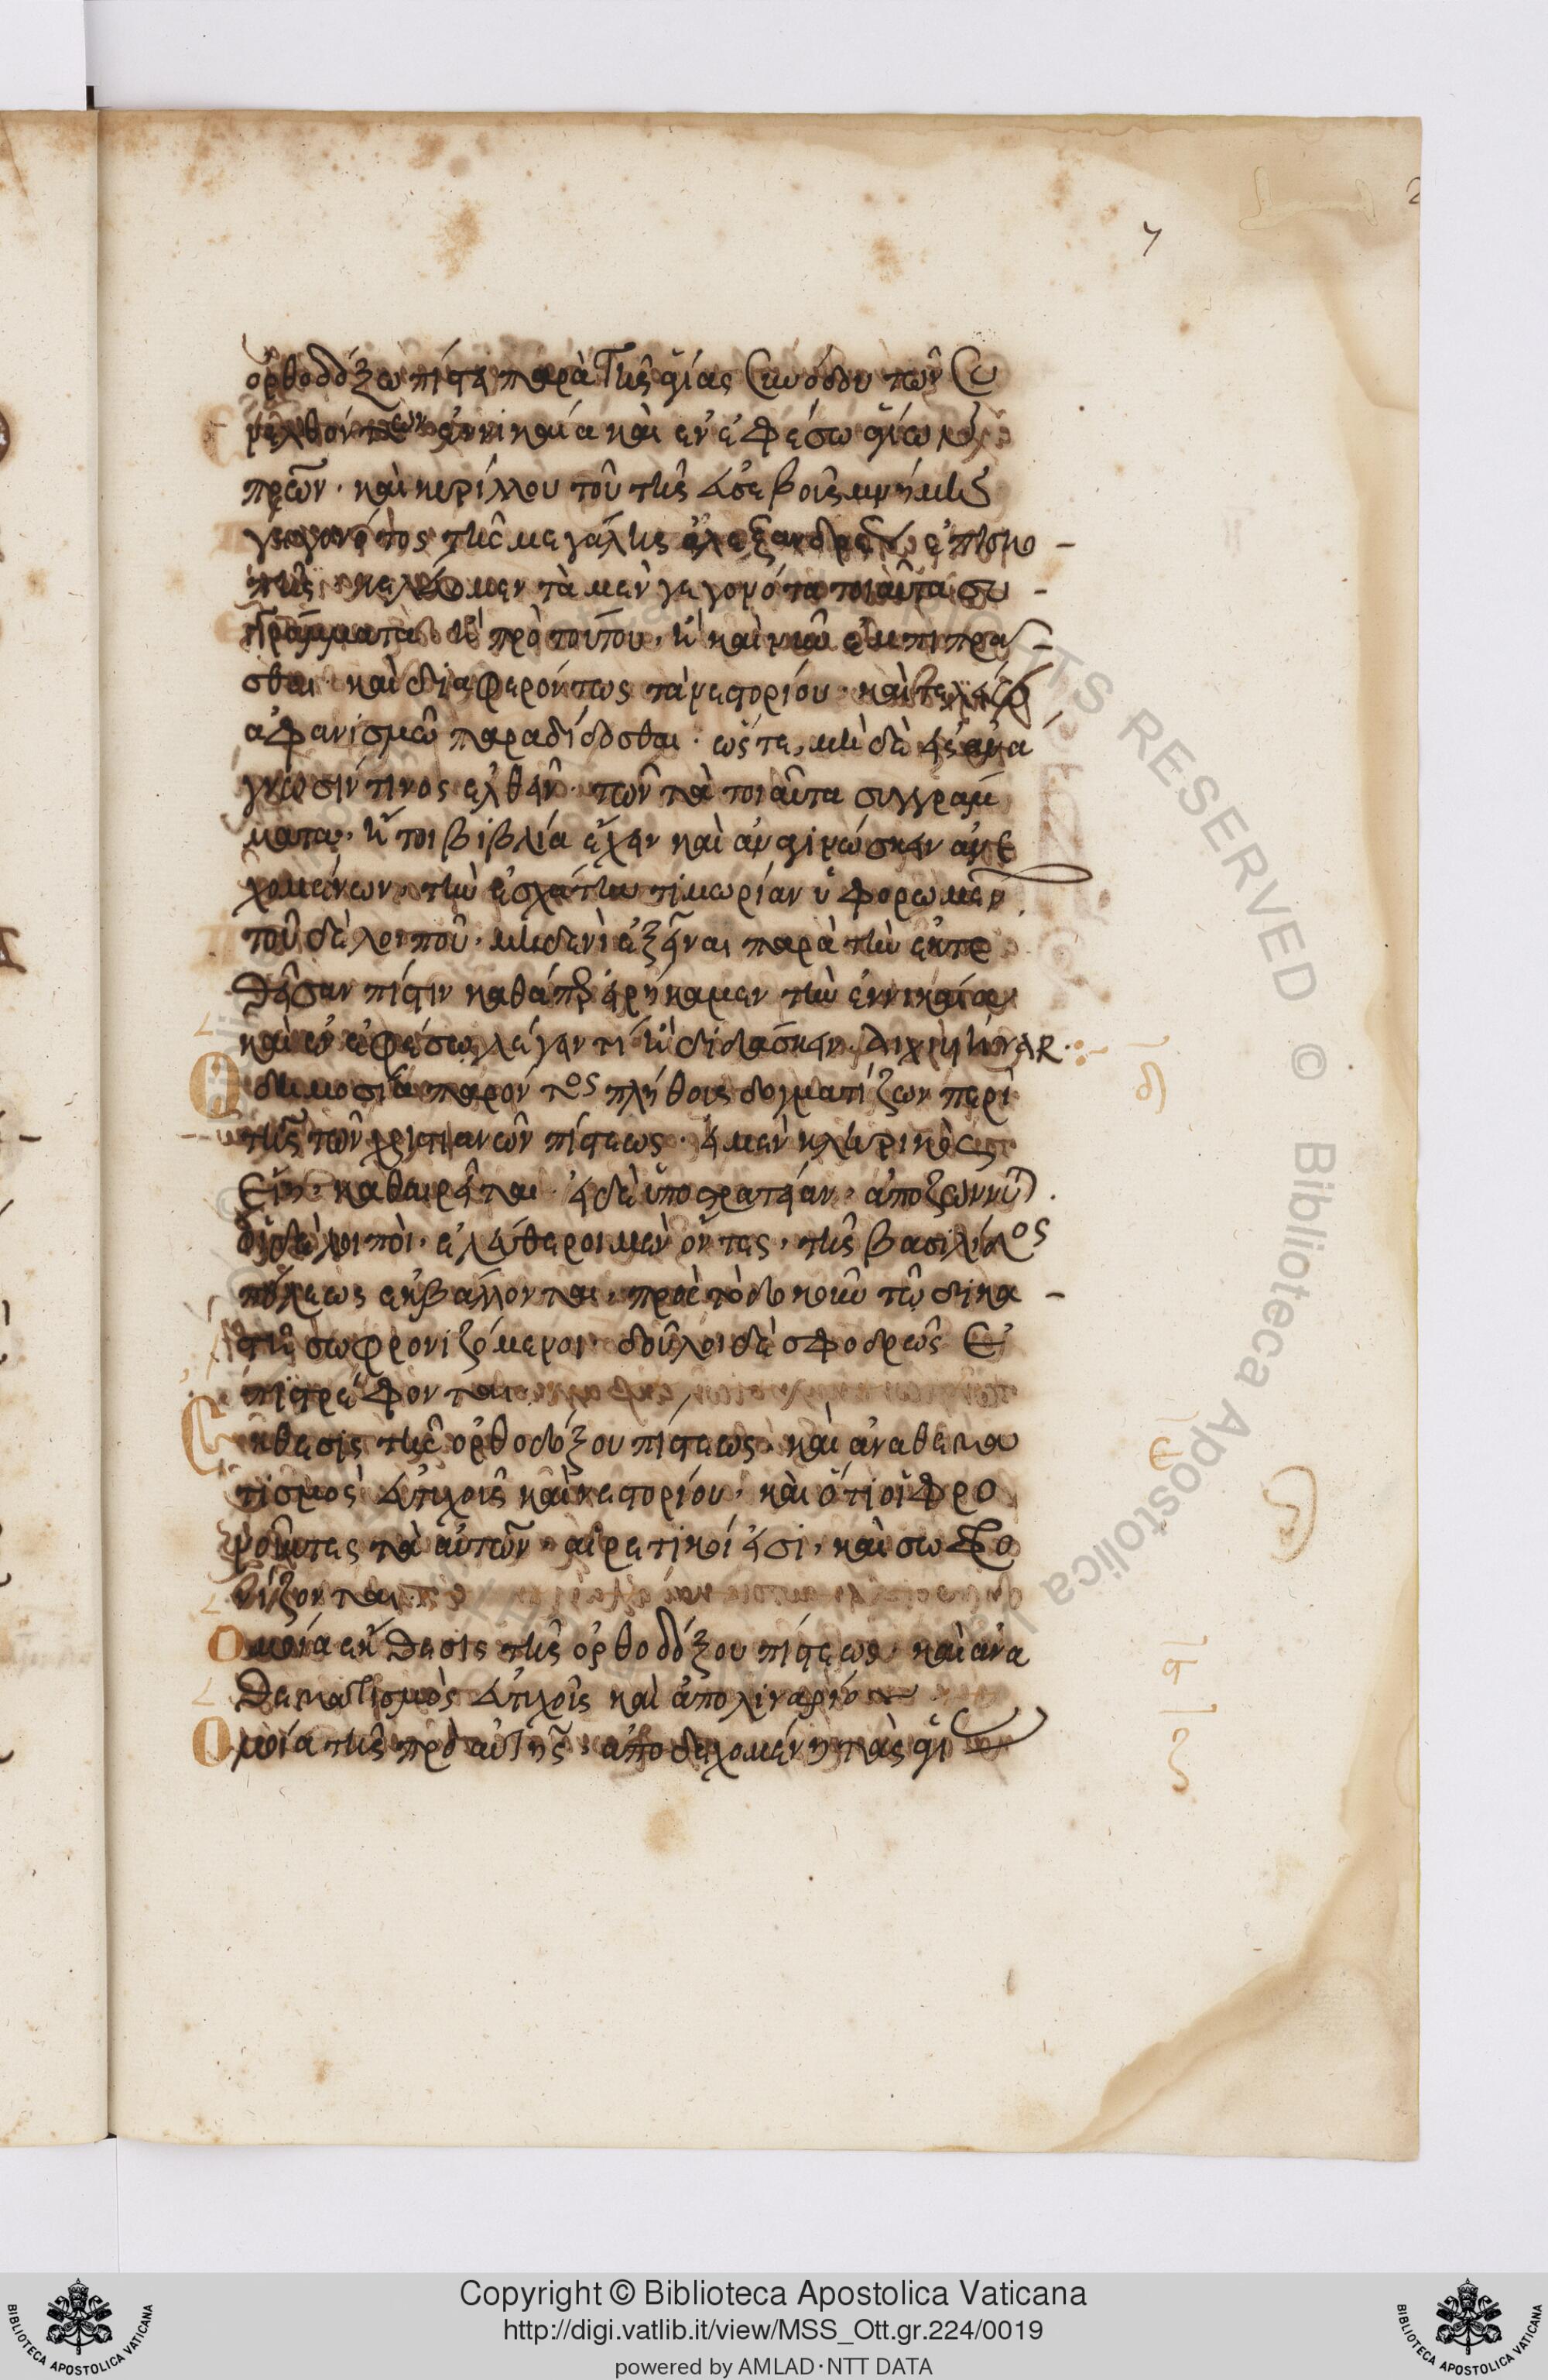 7
2
ὀρθοδόξω πίστει παρὰ τῆς ἁγίας συνόδου τῶν συ
νελθόντων ἐν νικαία καὶ ἐν ἐφέσω ἁγίων
πρῶν · καὶ κυρίλλου τοῦ τῆς εὐσεβοῦς μνήμης
γεγονότος τῆς μεγάλης ἀλεξανδρείας ἐπισκό
που κελεύομεν τὰ μὲν γεγονότα τοιαῦτα συ
γγράμματα ἢ πρὸ τούτου, ἢ καὶ νῦν ἐμπίπρα
σθαι · καὶ διαφερόντως τὰ νεστορίου · καὶ τελείω
ἀφανισμῶ παραδίδοσθαι · ὥστε, μὴ δὲ εἰς ἀνά
γνωσίν τινος ἐλθεῖν · τῶν τὰ τοιαῦτα συγγράμ
ματα, ἤτοι βιβλία ἔχειν καὶ ἀναγινώσκειν ἀνε
χομένων, τὴν ἐσχάτην τιμωρίαν ὑφορωμένων
τοῦ δὲ λοιποῦ, μηδενὶ ἐξεῖναι παρὰ τὴν ἐκτε
θεῖσαν πίστιν καθάπερ εἰρήκαμεν τὴν ἐν νικαία
καὶ ἐν ἐφέσω, λέγειν τί ἢ διδάσκειν ·
Ὁ δημοσία παρόντος πλήθους δογματίζων περὶ
δ
τῆς τῶν χριστιανῶν πίστεως · εἰ μὲν κληρικὸς
εἴη, καθαιρεῖται · εἰ δὲ ὑπὸ στρατείαν, ἀποζώννυται ·
οἱ δὲ λοιποὶ, ἐλεύθεροι μὲν ὄντες, τῆς βασιλίδος
πόλεως ἐκβάλλονται, πρὸς τὸ δοκοῦν τῶ δικα
στῆ σωφρονιζόμενοι · δοῦλοι δὲ σφοδρῶς ἐ
πιστρέφονται
Ἔκθεσις τῆς ὀρθοδόξου πίστεως, καὶ ἀναθεμα
ε
τισμὸς εὐτυχοῦς καὶ νεστορίου, καὶ ὅτι οἱ φρο
νοῦντες τὰ αὐτῶν, αἱρετικοί εἰσι, καὶ σωφρο
νίζονται
Ὁμοία ἔκθεσις τῆς ὀρθοδόξου πίστεως, καὶ ἀνα
ϛ
θεματισμὸς εὐτυχοῦς καὶ ἀπολιναρίου
Ὁμοία τῆς πρὸ αὐτῆς, ἀποδεχομένη τὰς ἁγί
ζ
RIGHTS RESERVED © Biblioteca Apostolica
Copyright © Biblioteca Apostolica Vaticana
http://digi.vatlib.it/view/MSS_Ott.gr.224/0019
powered by AMLAD·NTT DATA
BIBLIOTECA APOSTOLICA VATICANA
BIBLIOTECA APOSTOLICA VATICANA